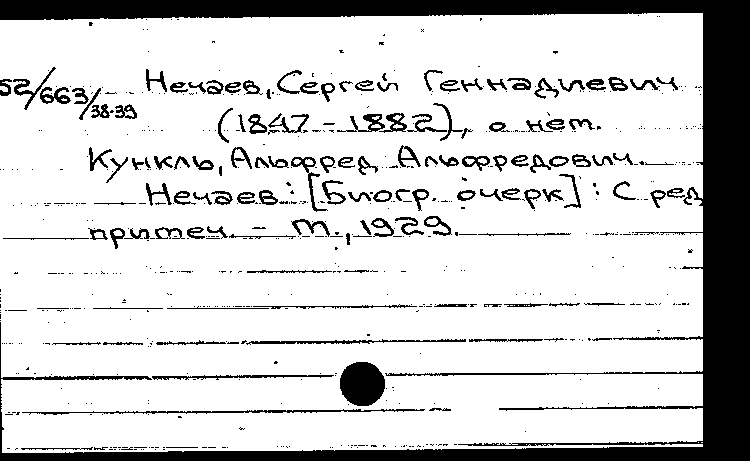 52/663/38-39 Нечаев, Сергей Геннадиевич
(1847-1882), о нем.
Кункль, Альфред Альфредович.
Нечаев: [Биогр. очерк]: С ред
примеч. - М., 1929.